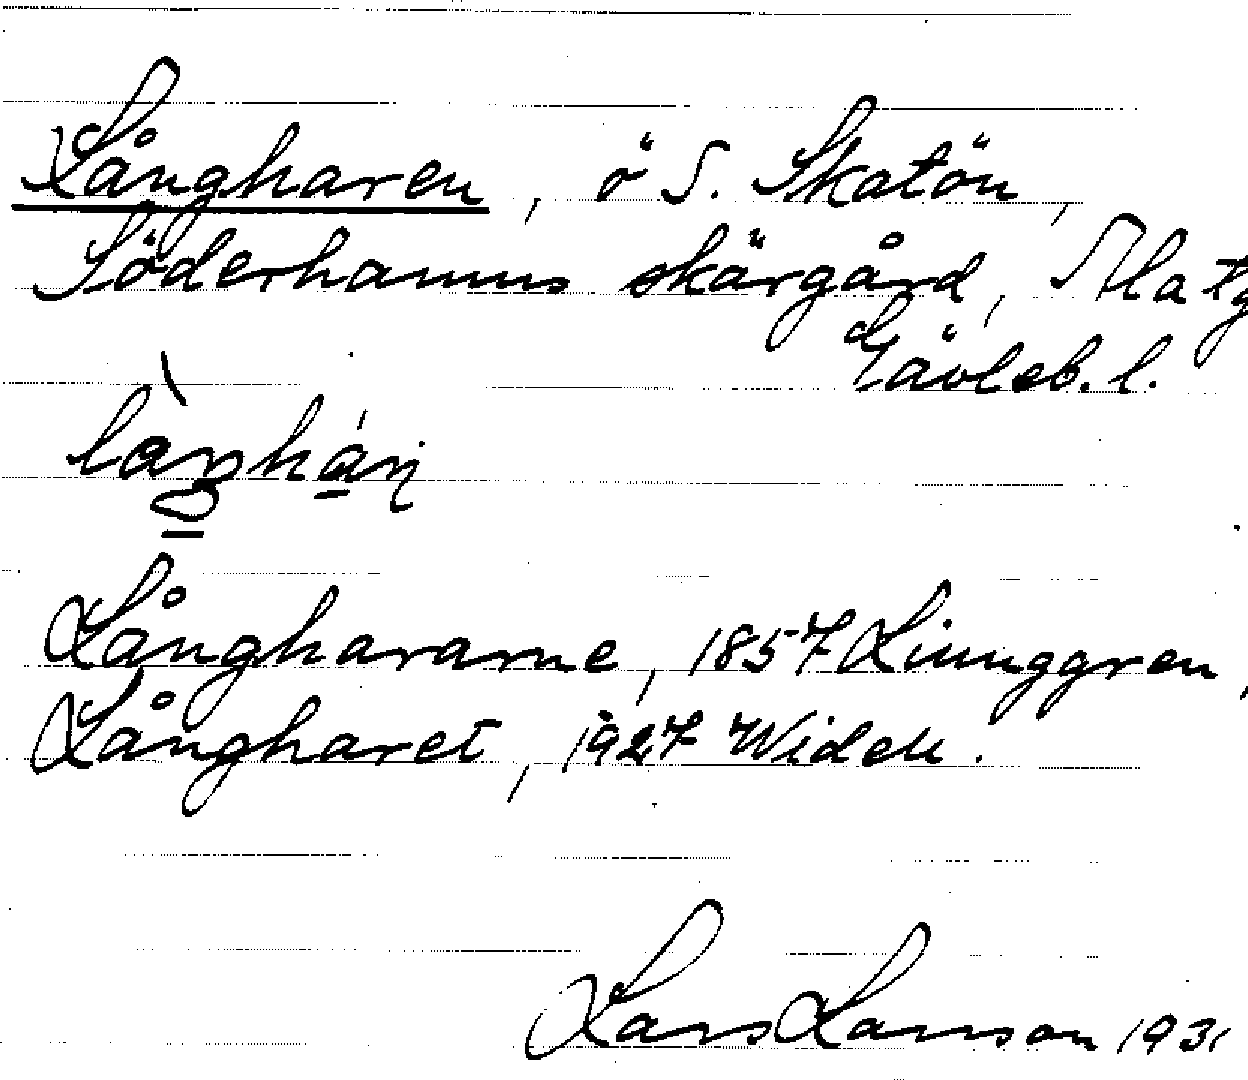 Långharen, ö S. Skatön,
Söderhamns skärgård,
Gävleb. l.
Långhararne, 1857 Ljunggren,
Långharet, 1927 Widell.
Lars Larsson 1931